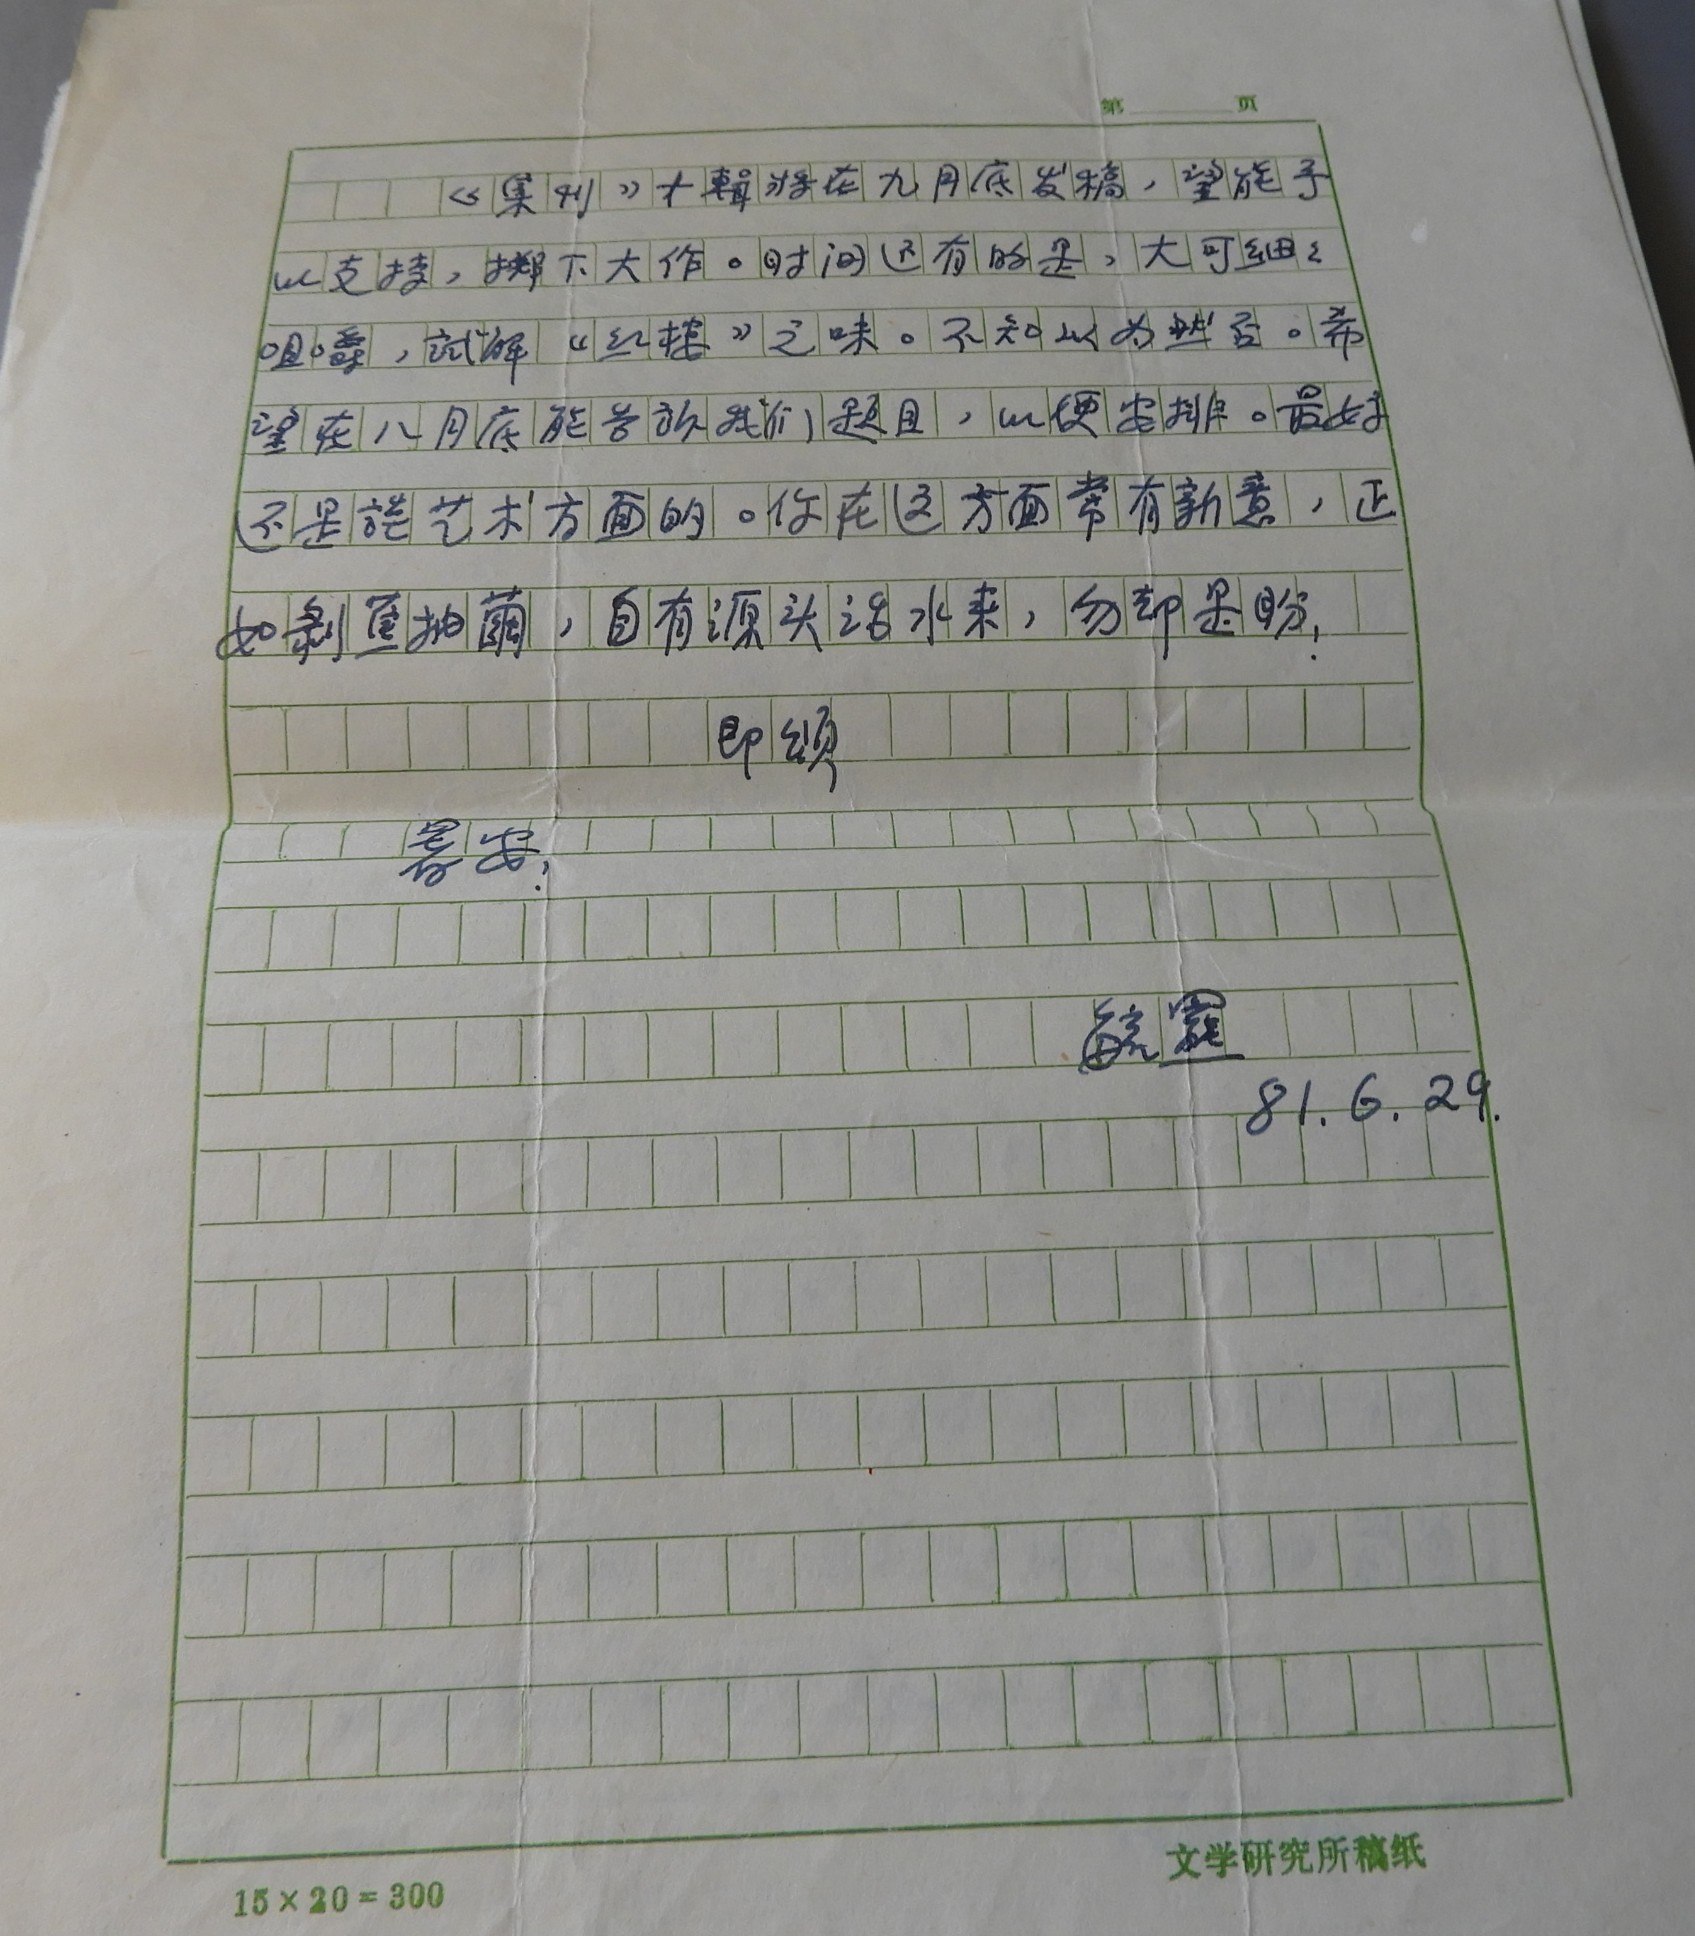 第　　页
《集刊》十輯将在九月底发稿，望能予
以支持，掷下大作。时间还有的是，大可细々
咀嚼，试解“红楼”之味。不知以为然否。希
望在八月底能告訴我们题目，以便安排。最好
还是谈艺术方面的。你在这方面常有新意，正
如剥茧抽茧，自有源头活水来，勿却是盼！
即頌
暑安！
毓罴
81.6.29.
文学研究所稿纸
15×20=300